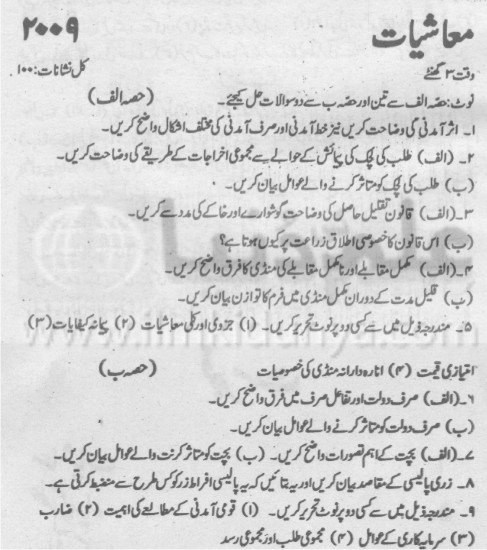 معاشیات ۲۰۰۹
وقت ۳ گھنٹے کل نشانات: ۱۰۰
نوٹ: حصہ الف سے تین اور حصہ ب سے دو سوالات حل کیجئے (حصہ الف)
۱۔ اثر آمدنی کی وضاحت کریں نیز خط آمدنی اور صرف آمدنی کی مختلف اشکال واضح کریں۔
۲۔ (الف) طلب کی لچک کی پیمائش کے حوالے سے مجموعی اخراجات کے طریقے کی وضاحت کریں۔
(ب) طلب کی لچک کو متاثر کرنے والے عوامل بیان کریں۔
۳۔ (الف) قانون تقلیل حاصل کی وضاحت گوشوارے اور خاکے کی مدد سے کریں۔
(ب) اس قانون کا خصوصی اطلاق زراعت پر کیوں ہوتا ہے؟
۴۔ (الف) مکمل مقابلے اور نامکمل مقابلے کی منڈی کا فرق واضح کریں۔
(ب) قلیل مدت کے دوران مکمل منڈی میں فرم کا توازن بیان کریں۔
۵۔ مندرجہ ذیل میں سے کسی دو پر نوٹ تحریر کریں۔ (۱) جزوی اور کلی معاشیات (۲) پیمانہ کفایات (۳)
www.ilmkidunya.com
امتیازی قیمت (۴) اجارہ دارانہ منڈی کی خصوصیات (حصہ ب)
۶۔ (الف) صرف دولت اور تفاعل صرف میں فرق واضح کریں۔
(ب) صرف دولت کو متاثر کرنے والے عوامل بیان کریں۔
۷۔ (الف) بچت کے اہم تصورات واضح کریں۔ (ب) بچت کو متاثر کرنے والے عوامل بیان کریں۔
۸۔ زری پالیسی کے مقاصد بیان کریں اور یہ بتائیں کہ یہ پالیسی افراط زر کو کس طرح سے منضبط کرتی ہے۔
۹۔ مندرجہ ذیل میں سے کسی دو پر نوٹ تحریر کریں۔ (۱) قومی آمدنی کے مطالعے کی اہمیت (۲) ضارب
(۳) سرمایہ کاری کے عوامل (۴) مجموعی طلب اور مجموعی رسد